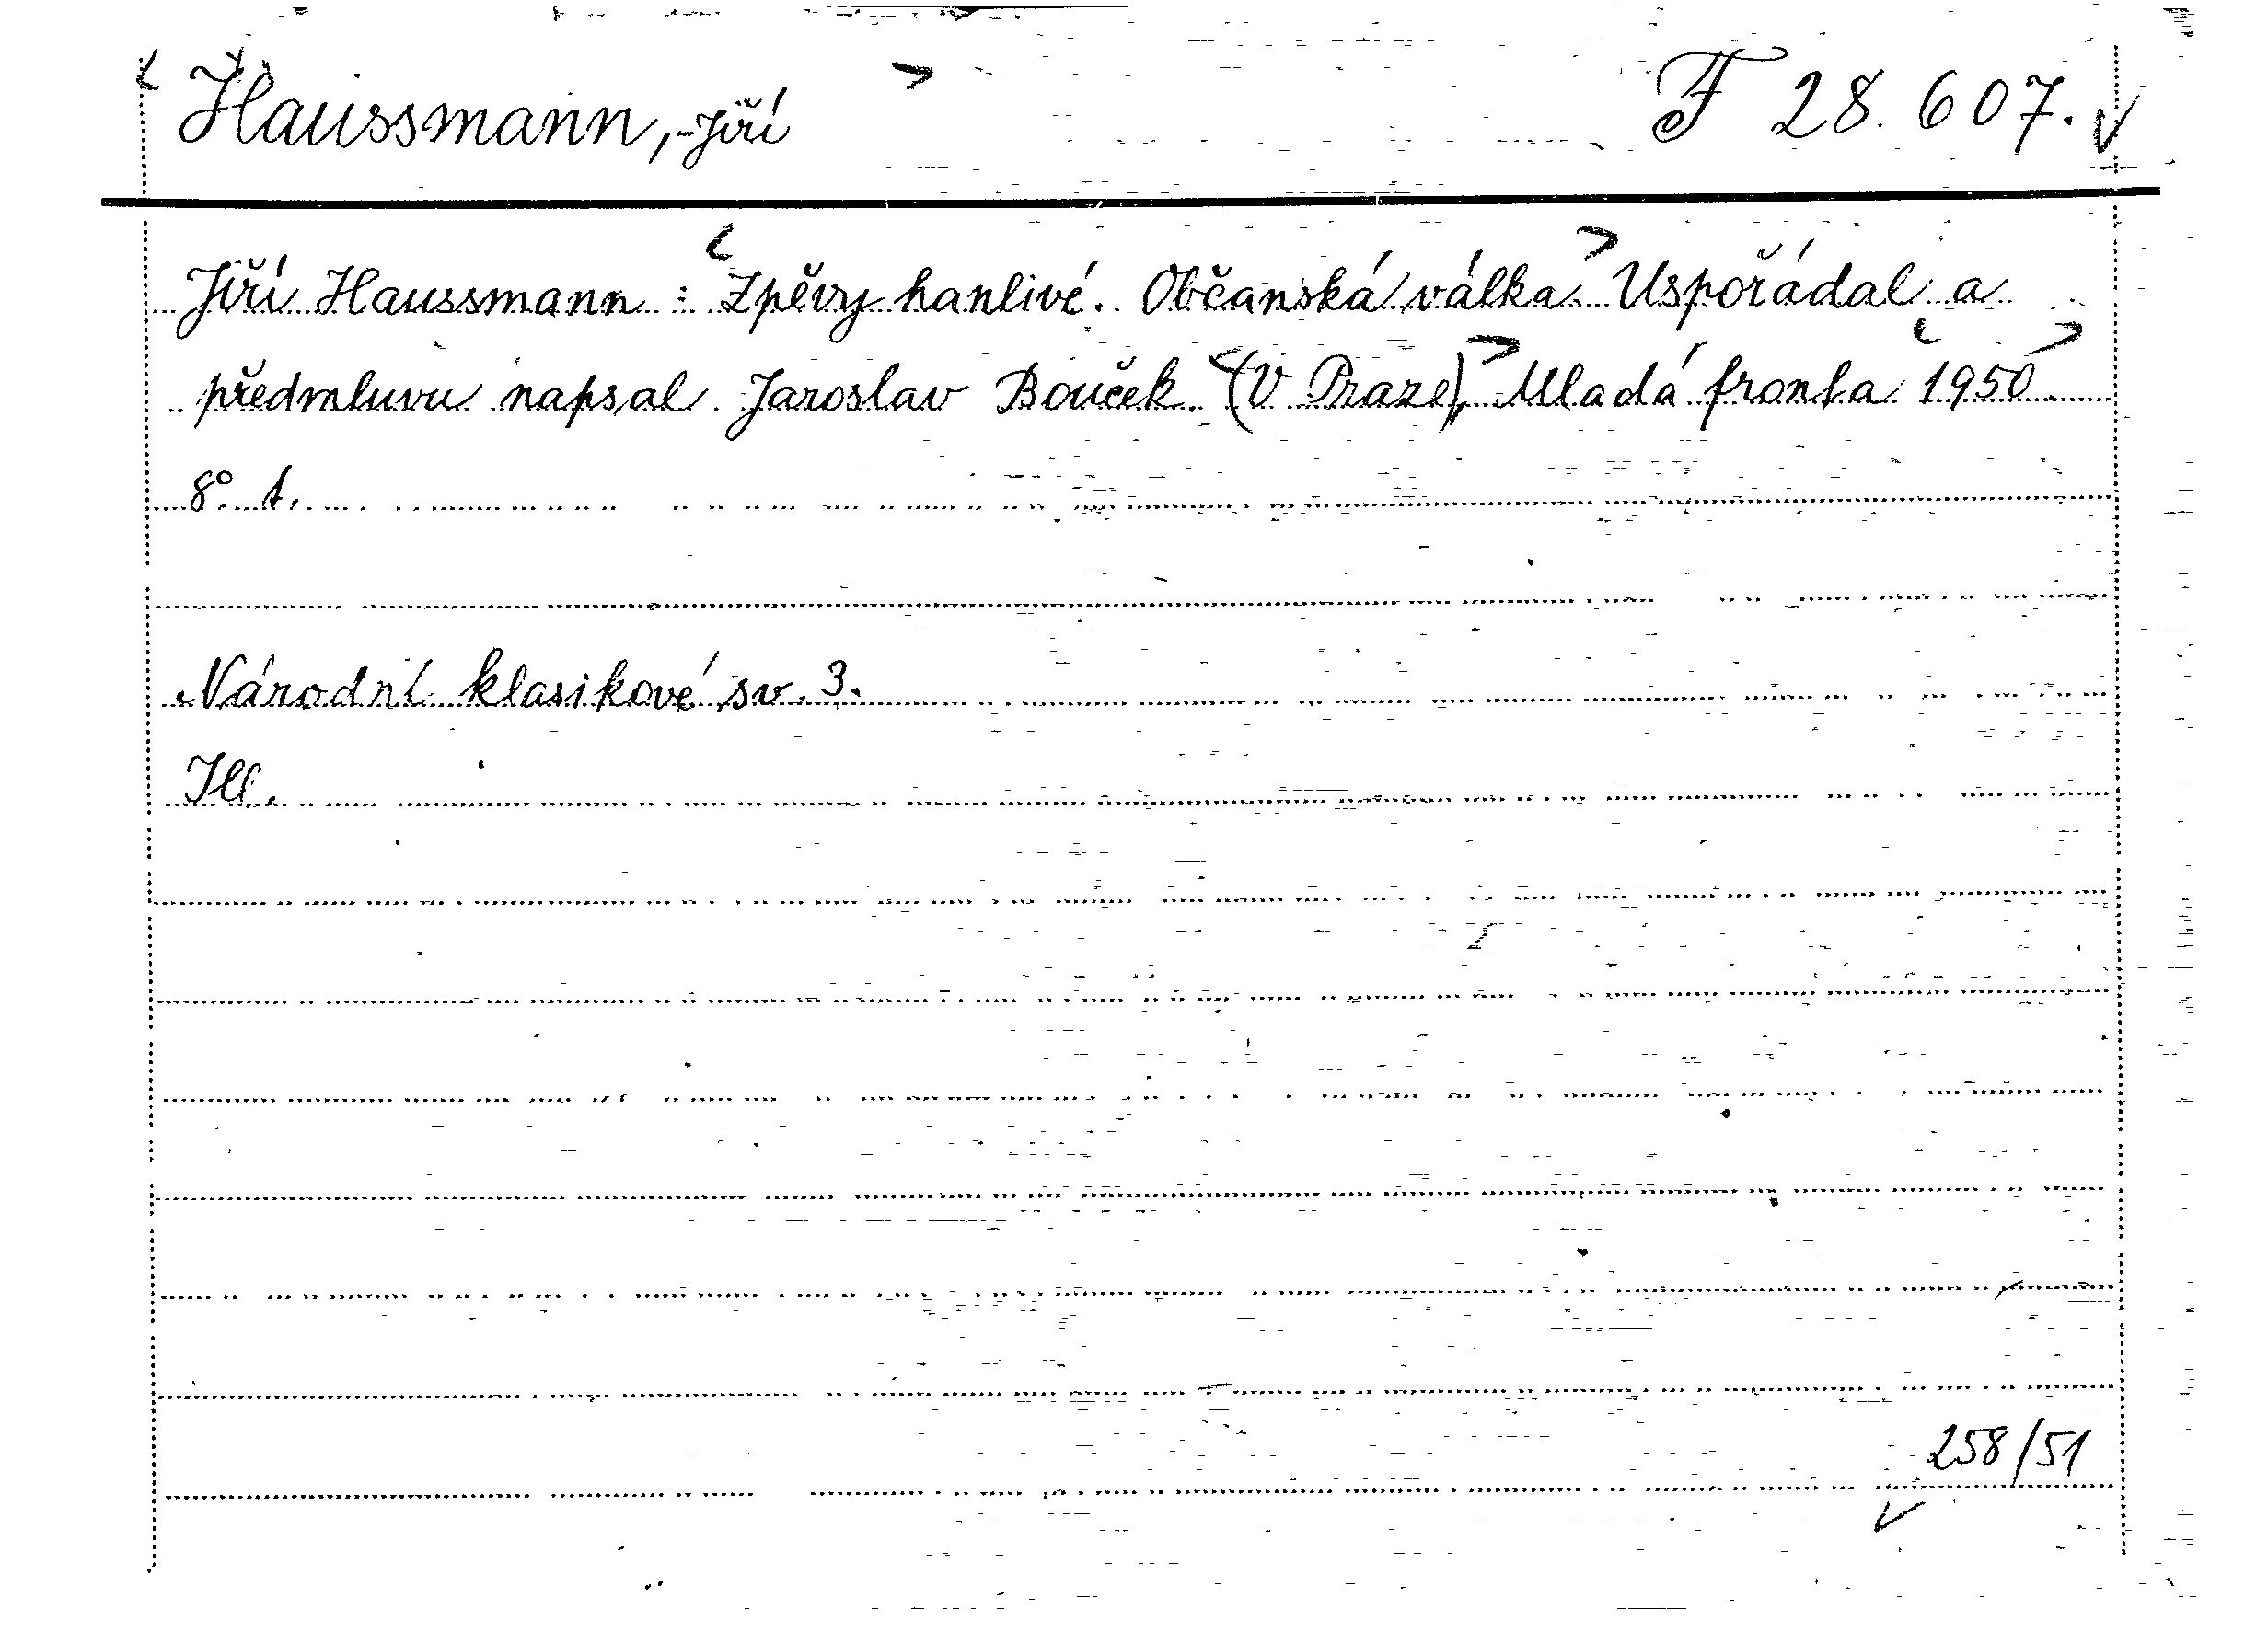 Haussmann, Jiří F 28.607.
Jiří Haussmann: Zpěvy hanlivé. Občanská válka. Uspořádal a
předmluvu napsal Jaroslav Bouček. (V Praze), Mladá fronta 1950.
8°. 1.
Národní klasikové sv. 3.
Ill.
258/51